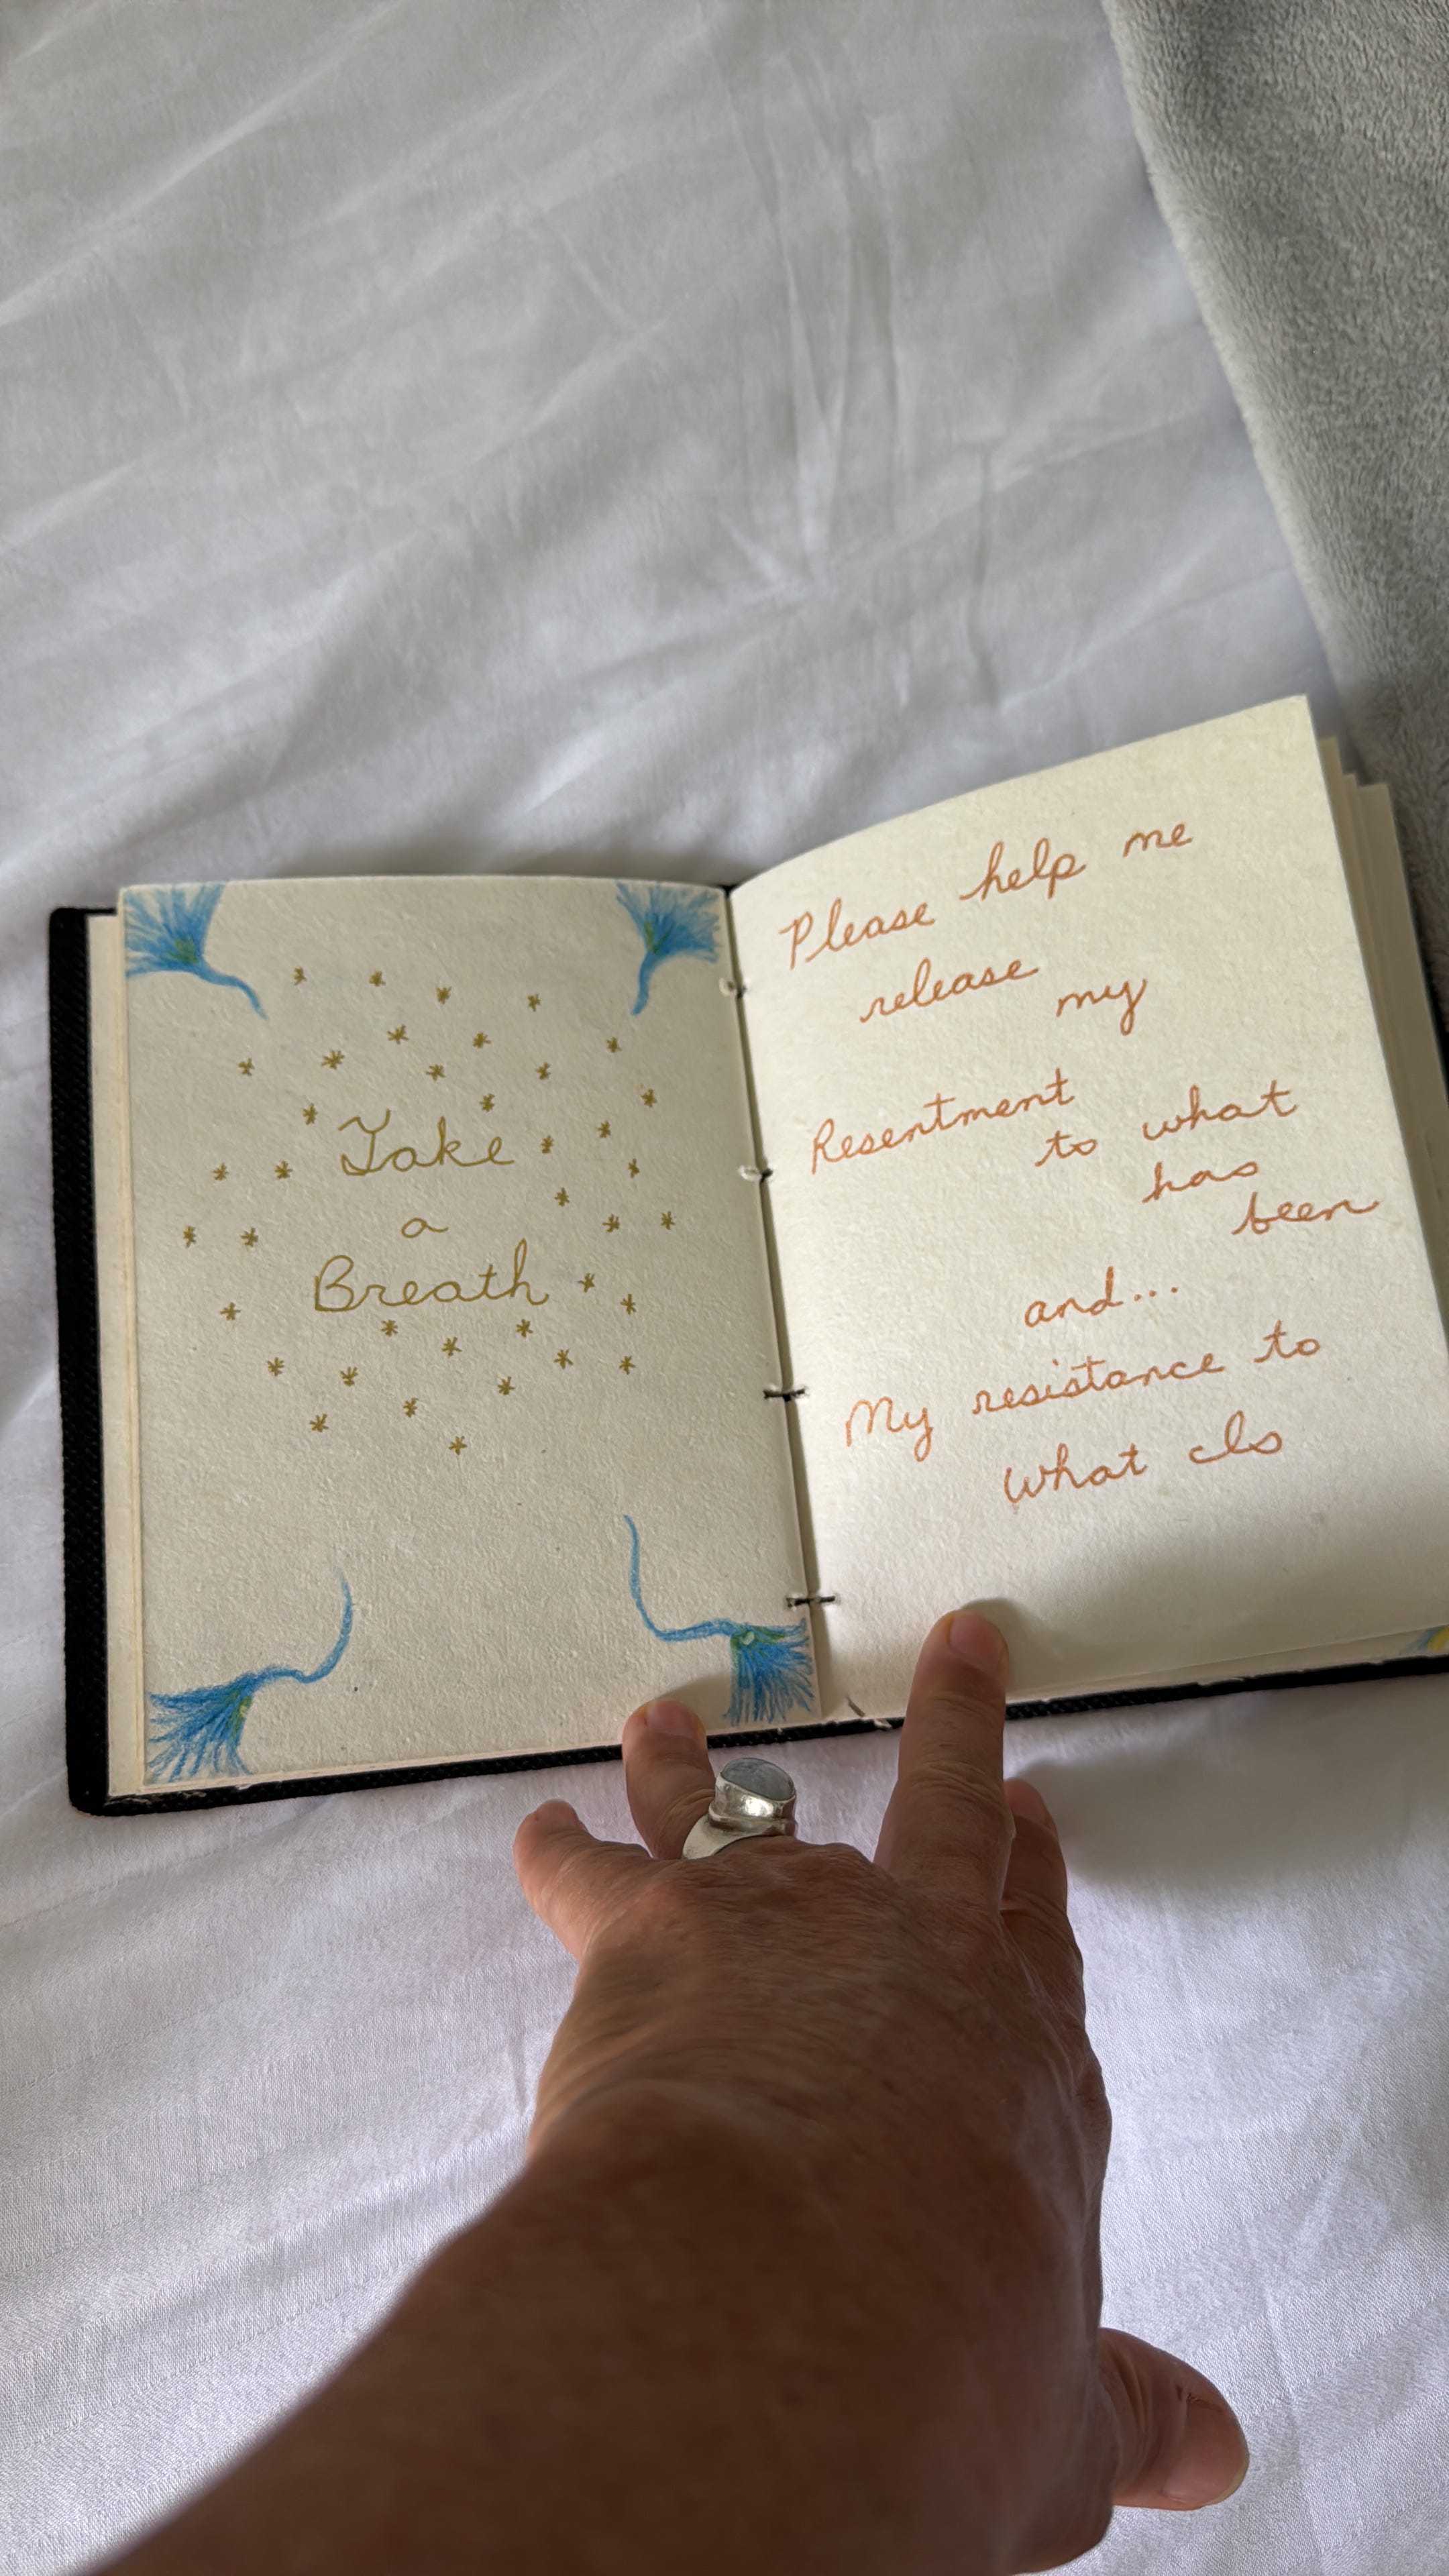 Take
a
Breath
Please help me
release my
Resentment to what
has
been
and...
My resistance to
What Is